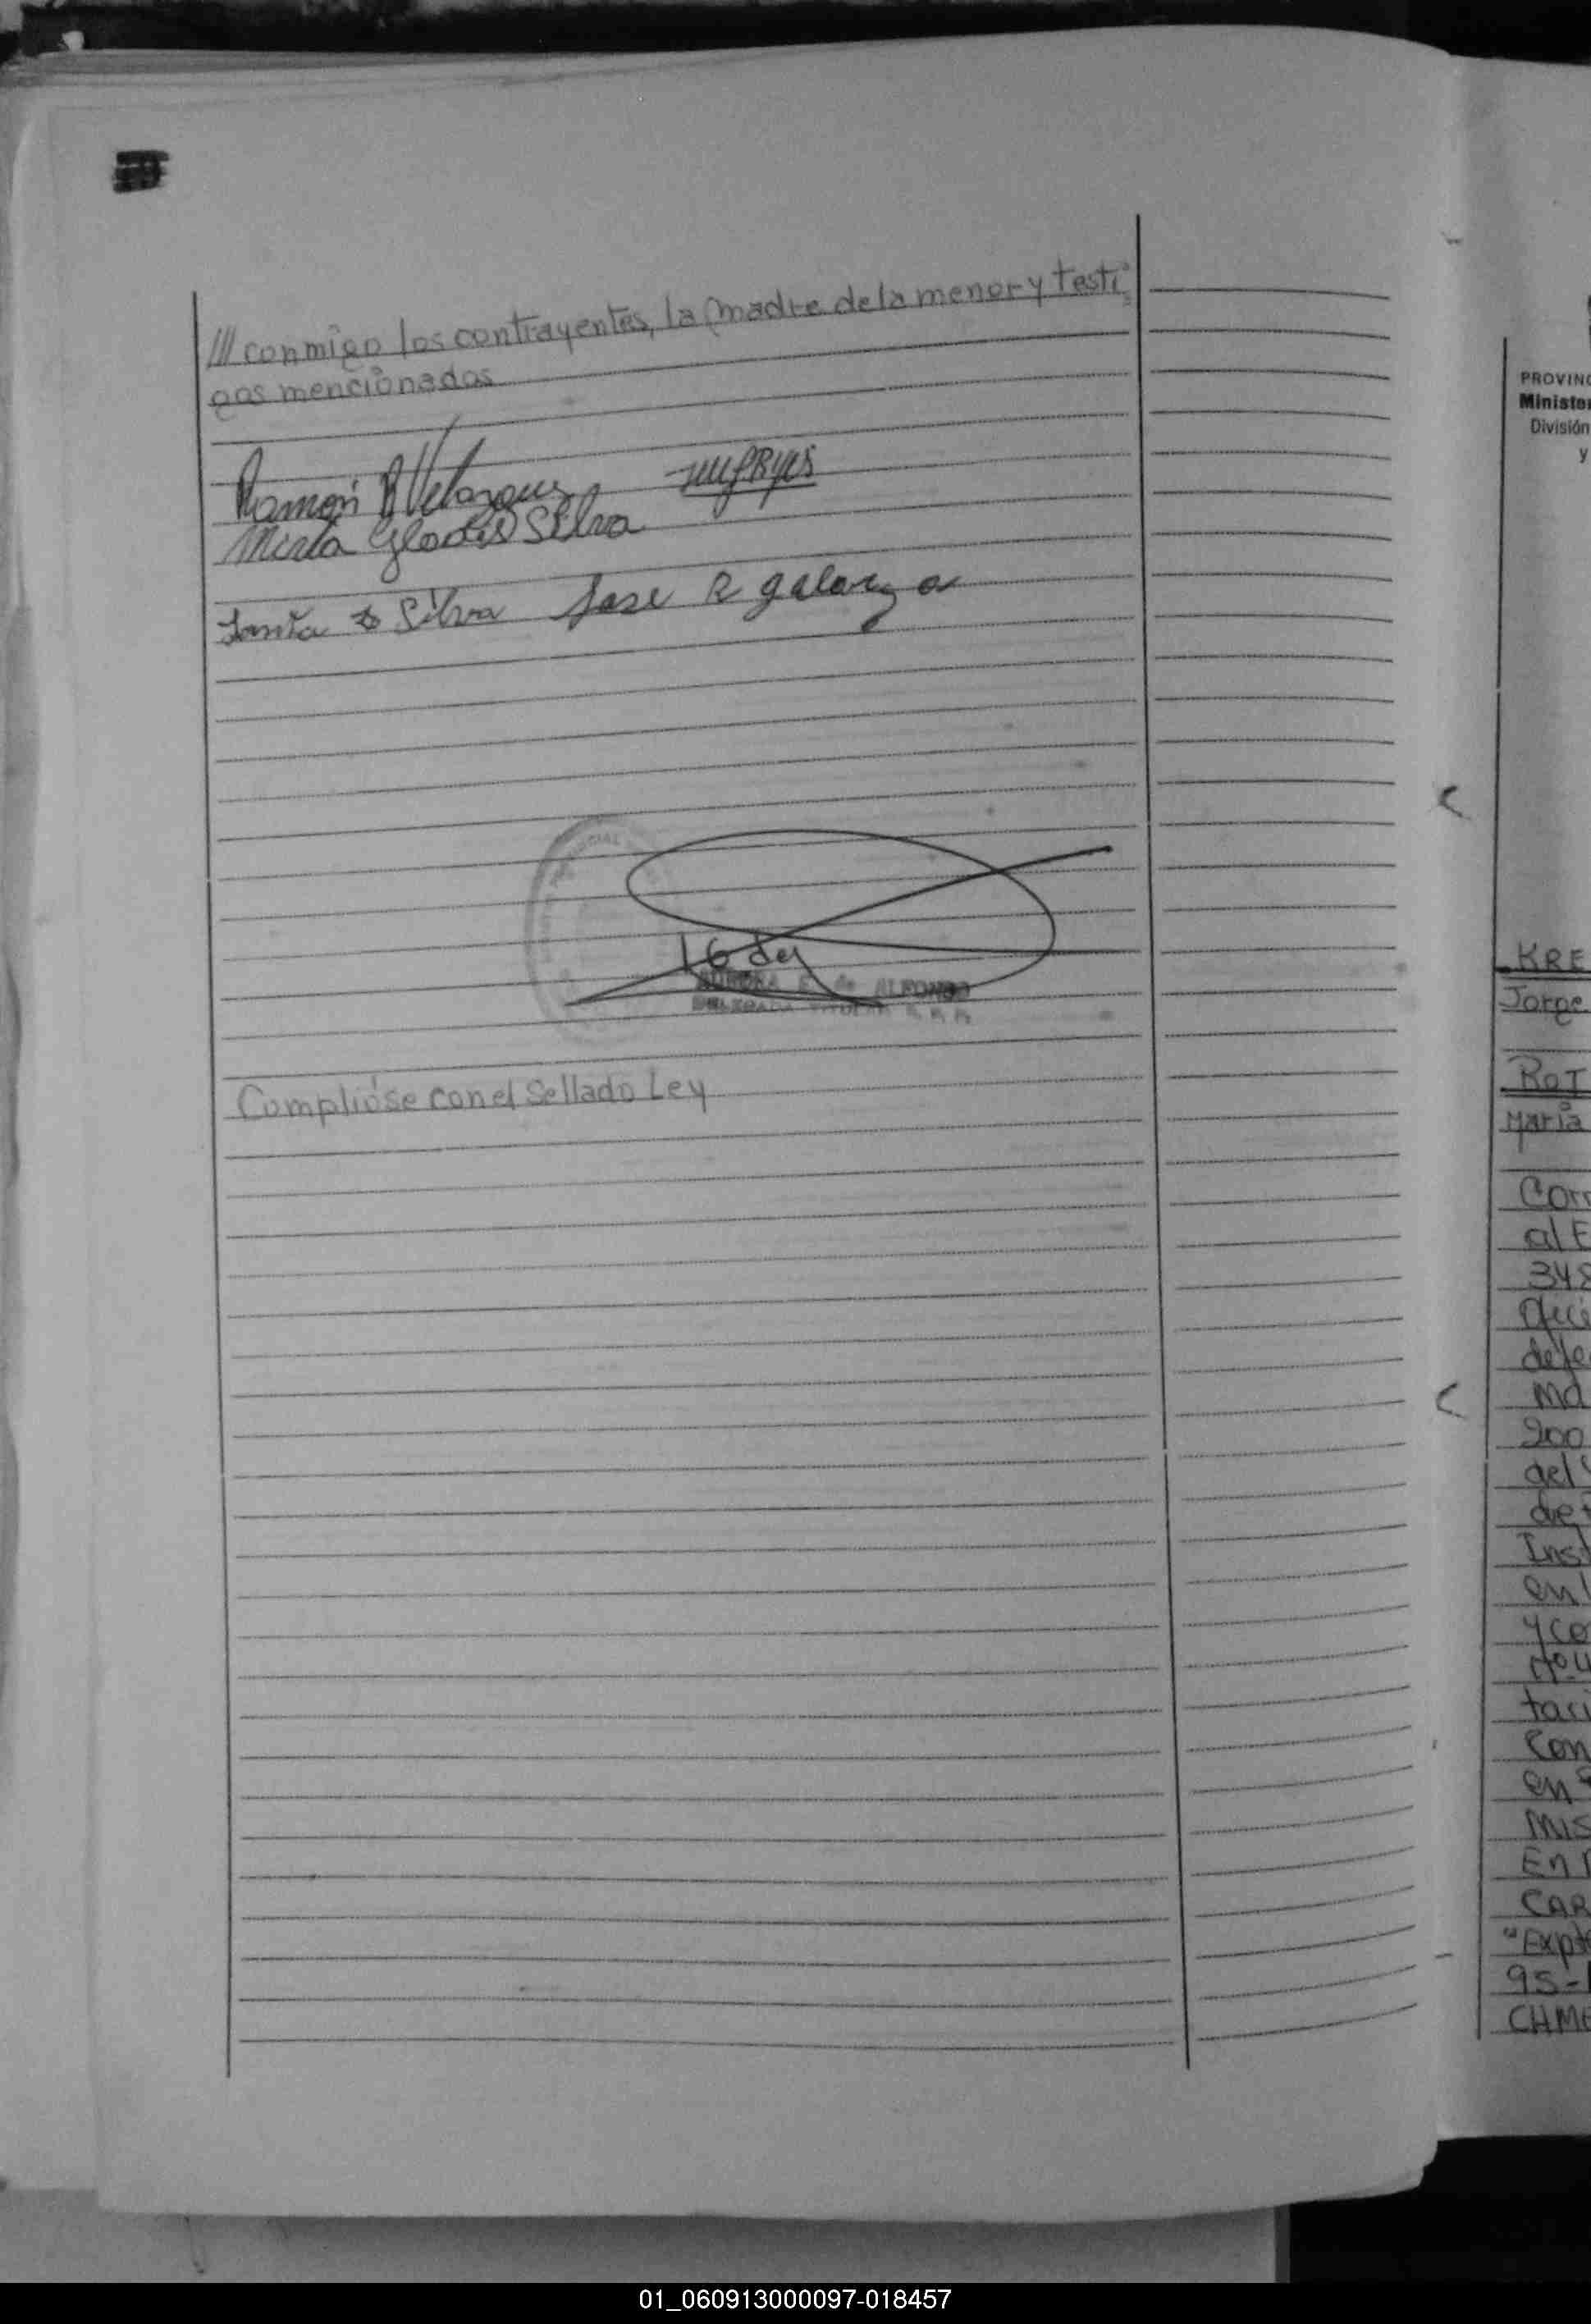 /// conmigo los contrayentes, la madre de la menor y testi
gos mencionados
Ramón A Velazquez
Mirta Gladis Silva
Silva Jose R galarza
PROVINCIAL
16 de
AURORA E. de ALFONSO
DELEGADA TITULAR R. P.
Cumplióse con el Sellado Ley
PROVINC
Minister
División
y
KRE
Jorge
ROT
María
Con
al E
348
Ofici
defe
Md
200
del
de
Inst
en l
y co
Nº 4
taci
Con
en
MIS
En
CAR
"Expte
95-
CHME
01_060913000097-018457